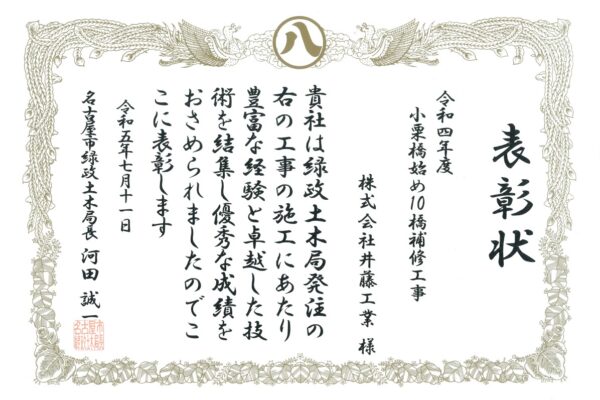 八
表彰状
令和四年度
小栗橋始め10橋補修工事
株式会社井藤工業 様
貴社は緑政土木局発注の
右の工事の施工にあたり
豊富な経験と卓越した技
術を結集し優秀な成績を
おさめられましたのでこ
こに表彰します
令和五年七月十一日
名古屋市緑政土木局長 河田 誠一